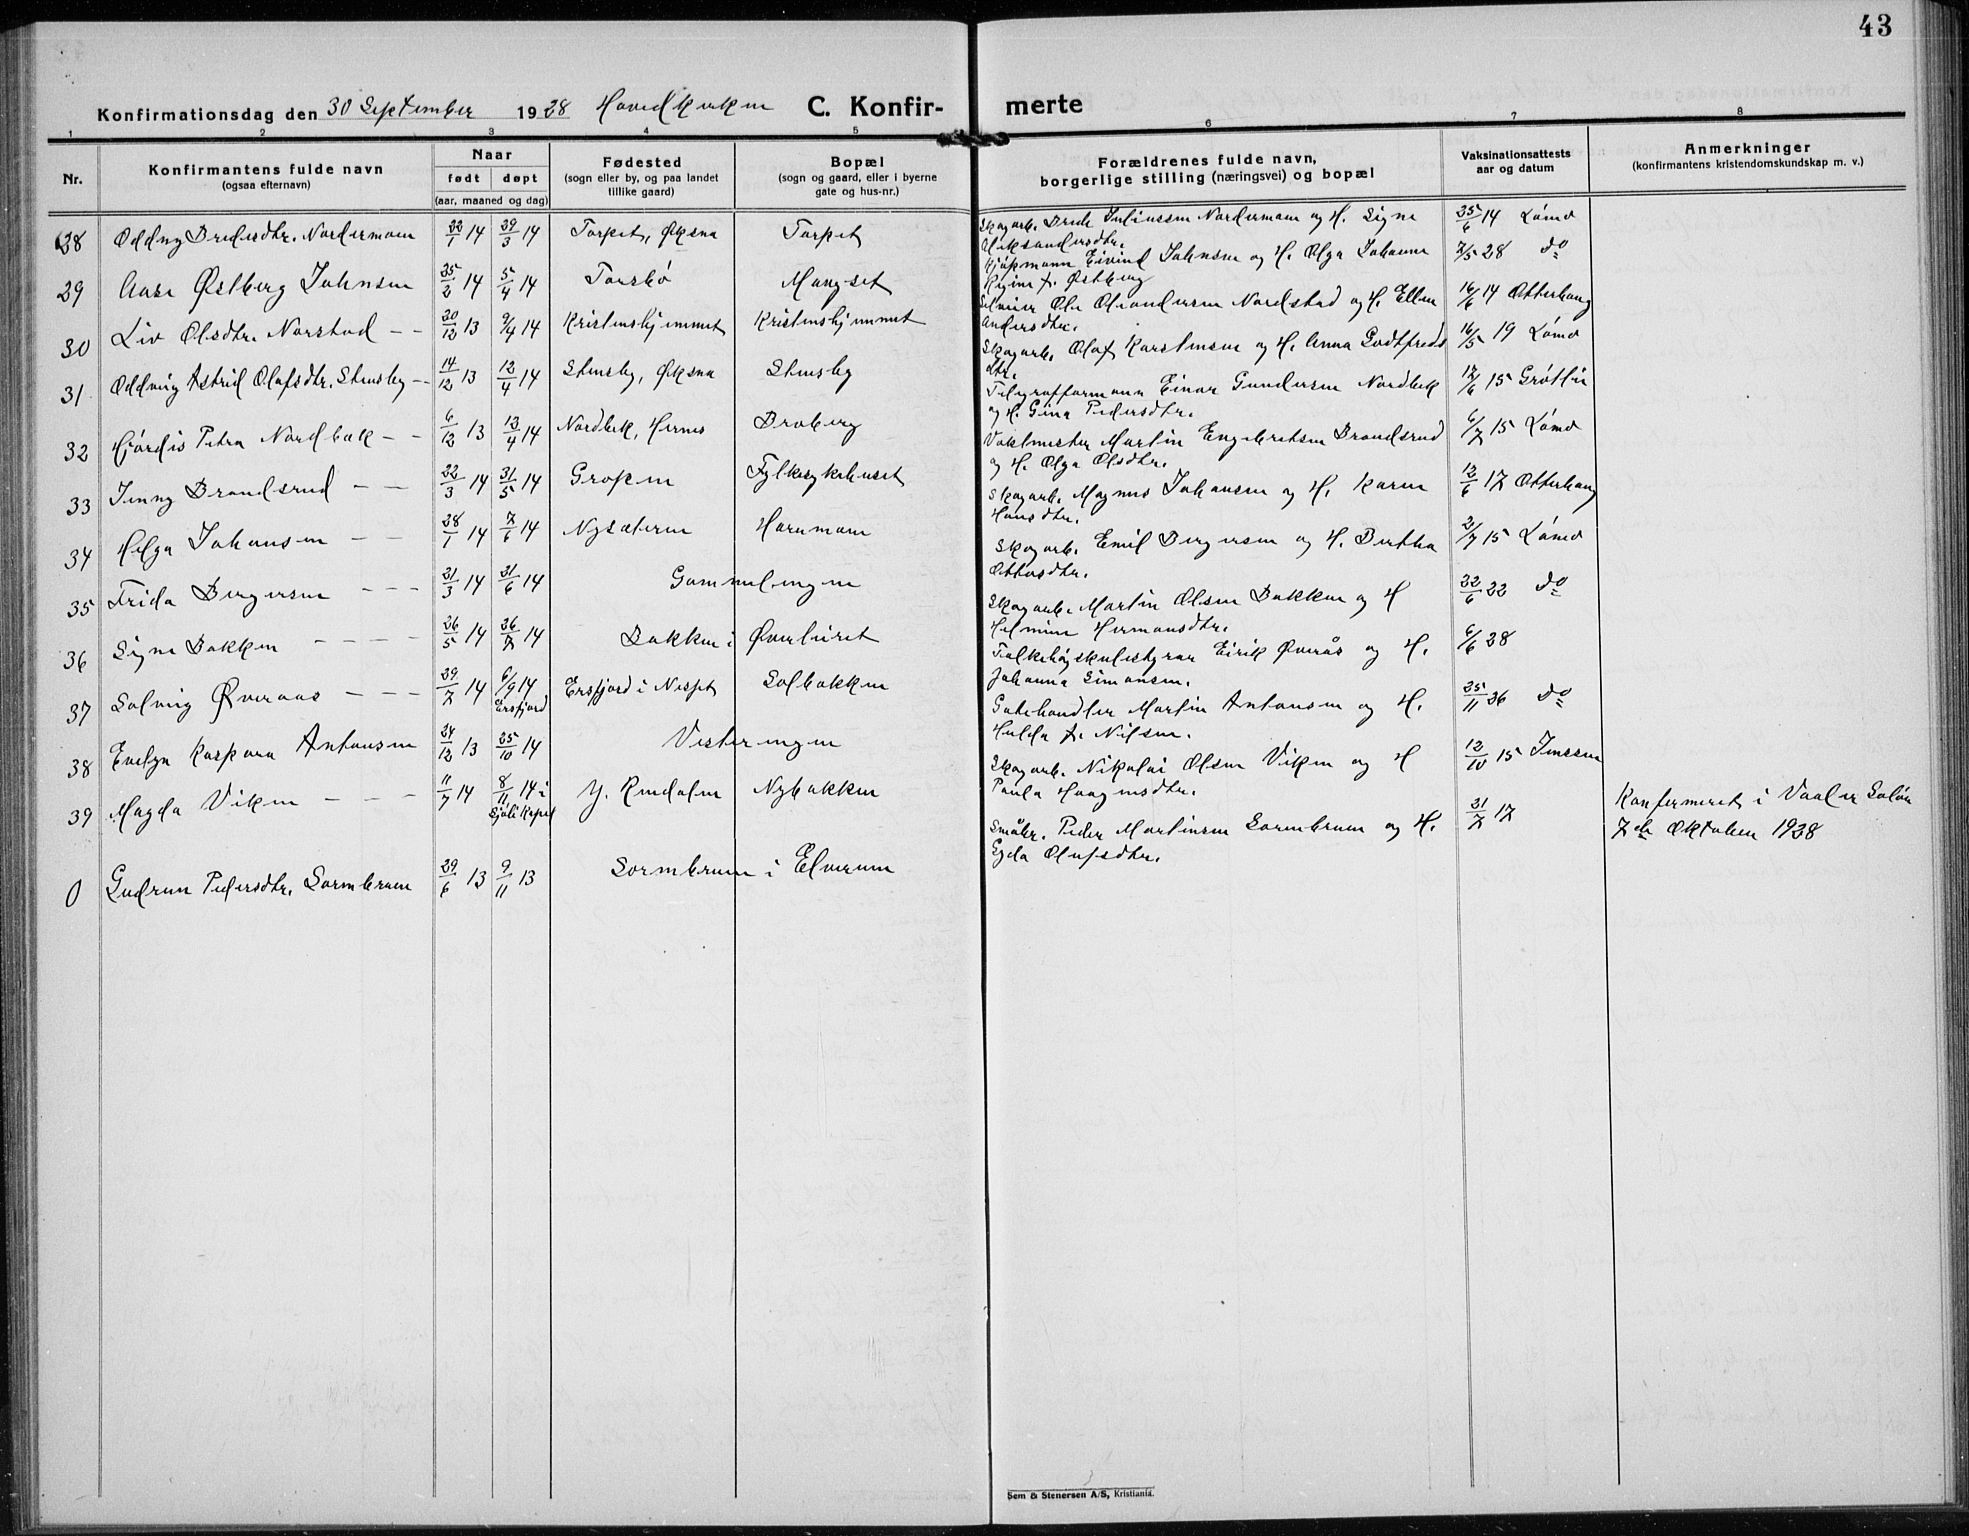 43
Konfirmationsdag den 30 September 1928 Hovedkirken C. Konfir-merte
1 2 3 4 5 6 7 8
Nr.
Konfirmantens fulde navn
(ogsaa efternavn)
Naar
født døpt
(aar, maaned og dag)
Fødested
(sogn eller by, og paa landet
tillike gaard)
Bopæl
(sogn og gaard, eller i byerne
gate og hus-nr.)
Forældrenes fulde navn,
borgerlige stilling (næringsvei) og bopæl
Vaksinationsattests
aar og datum
Anmerkninger
(konfirmantens kristendomskundskap m. v.)
28 Oddny Bredesdtr. Nordermoen 22/1 14 29/3 14 Torpet, Øksna Torpet Skogarb. Brede Juliussen Nordermoen og H. Signe 25/6 14 Lømo
Aleksandersdtr.
29 Aase Østberg Johnsen 25/2 14 5/4 14 Torsbø Mangset Kjøpmann Eivind Johnsen og H. Olga Johanne 7/5 28 do
Regine f. Østberg
30 Liv Olsdtr. Norstad - - 20/12 13 9/4 14 Kristenshjemmet Kristenshjemmet Ole Nordstad og H. Ellen 16/6 14 Otterhaug
Andersdtr.
31 Oddveig Astrid Olafsdtr. Stensby - - 14/12 13 12/4 14 Stensby, Øksna Stensby Skogarb. Olaf Karstensen og H. Anna Godtfreds 16/5 19 Lømo
dtr.
32 Hjørdis Petra Nordbæk - - 6/12 13 13/4 14 Nordbek, Hernes Broberg Telegrafformann Einar Gundersen Nordbek 12/6 15 Grøtli
og H. Gina Pedersdtr.
33 Jenny Brandsrud - - 22/3 14 31/5 14 Gropen Fylkesykehuset Vaktmester Martin Engebretsen Brandsrud 6/7 15 Lømo
og H. Olga Olsdtr.
34 Helga Johansen - - 28/1 14 7/6 14 Nysæteren Hornmoen Skogarb. Magnus Johansen og H. Karen 12/6 17 Otterhaug
Hansdtr.
35 Frida Bergersen - - - 21/3 14 21/6 14 Gammelengen Skogarb. Emil Bergersen og H. Bertha 2/7 15 Lømo
Ottosdtr.
36 Signe Bakken - - - - 26/5 14 26/7 14 Bakken i Øverbüret Skogarb. Martin Olsen Bakken og H 22/6 22 do
Helmine Hermansdtr.
37 Solveig Øveraas - - - 29/7 14 6/9 14 Ersfjord Ersfjord i Nesset Solbakken Folkehøgskulestyrar Eirik Øverås og H. 6/6 28
Johanna Simonsen.
38 Evelyn Kaspara Antonsen 24/12 13 25/10 14 Vesterengen Gatehandler Martin Antonsen og H. 25/11 26 do
Hulda f. Nilsen.
39 Magda Viken - - - 11/7 14 8/11 14 i Sjøli Kapel Y. Rendalen Nybakken Skogarb. Nikolai Olsen Viken og H 12/10 15 Jenssen
Paula Haagensdtr.
0 Gudrun Pedersdtr. Sormbrum 29/6 13 9/11 13 Sormbrum i Elverum Småbr. Peder Martinsen Sormbrum og H. 21/7 17 Konfirmeret i Vaaler Solør
Egda Olufsdtr. 7de Oktober 1928
Sem & Stenersen A/S, Kristiania.